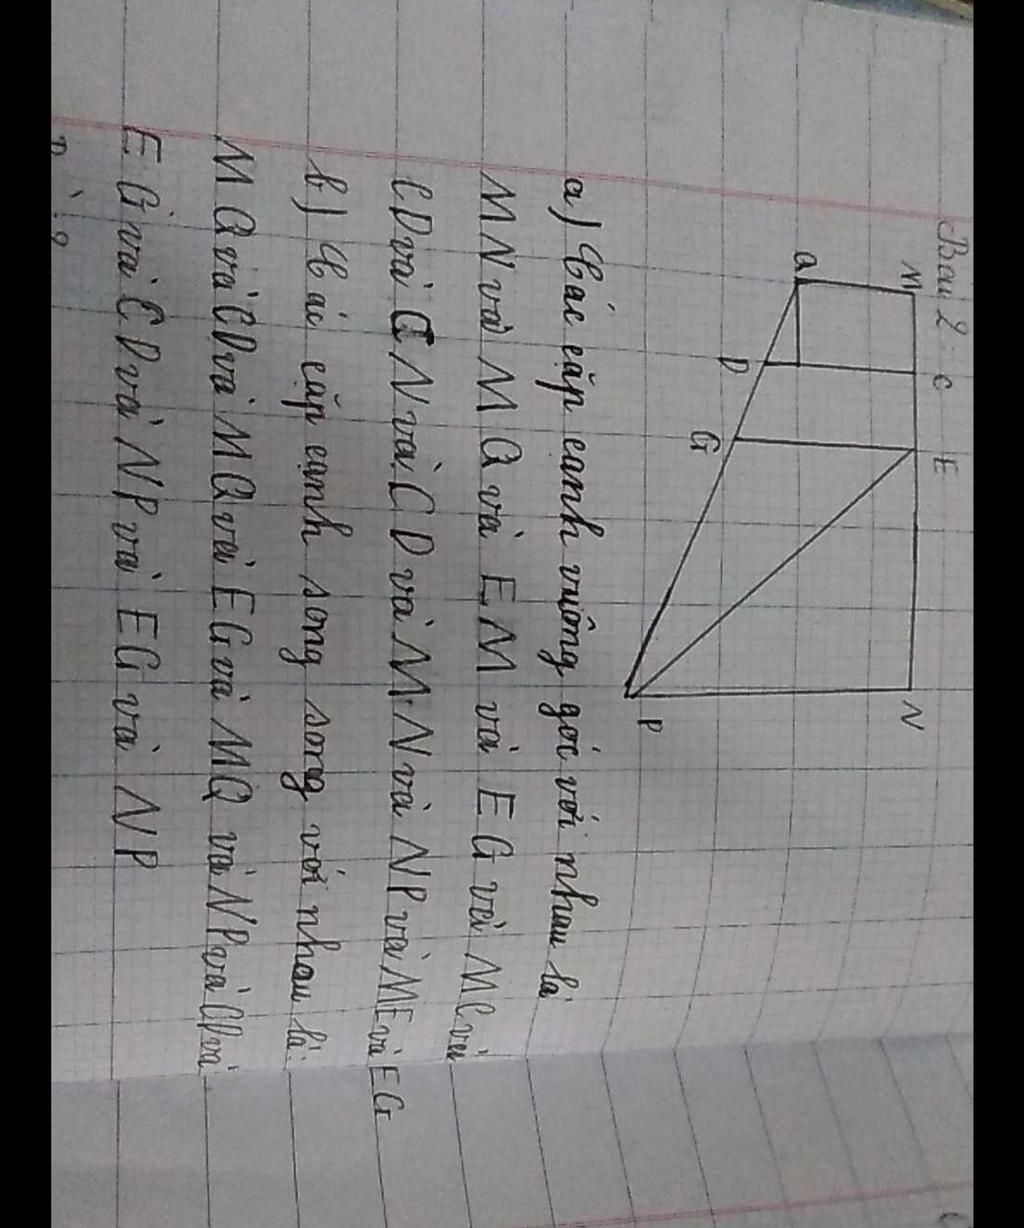 Bài 2:
M C E N
Q D G P
a) Các cặp cạnh vuông gói với nhau là
MN và MQ và EM và EG và MC và
CD và CN và CD và MN và NP và ME và EG
b) Các cặp cạnh song song với nhau là:
MQ và CD và MQ và EG và MQ và NP và CD và
EG và CD và NP và EG và NP